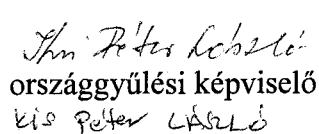 Péter László
országgyűlési képviselő
Kis Péter LÁSZLÓ